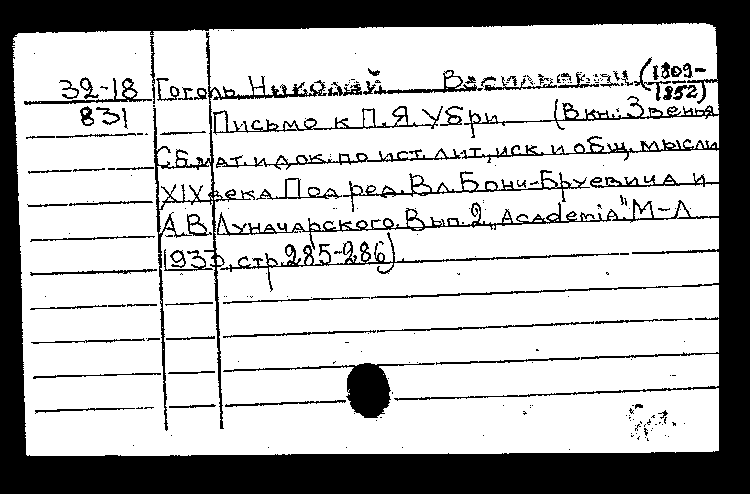 32-18 Гоголь Николай Васильевич (1809-
1852)
831 Письмо к П.Я. Убри. (В кн.: Звенья
Сб. мат. и док. по ист. лит., иск. и общ. мысли
XIX века. Под ред. Вл. Бонч-Бруевича и
А.В. Луначарского. Вып. 2 „Academia". М-Л
1933, стр. 285-286).